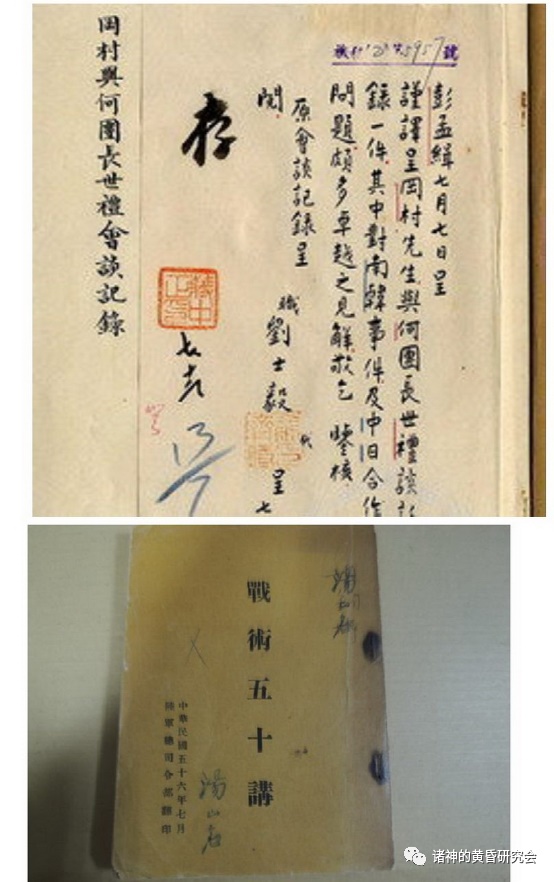 5957號
彭孟緝七月七日呈
謹譯呈岡村先生與何團長世禮談
錄一件其中對南韓事件及中日合作
問題頗多卓越之見解敬乞 鑒核
原會談記錄呈
閱
職劉士毅代呈七
存
蔣中正印
岡村與何團長世禮會談記錄
戰術五十講
中華民國五十六年七月
陸軍總司令部翻印
诸神的黄昏研究会